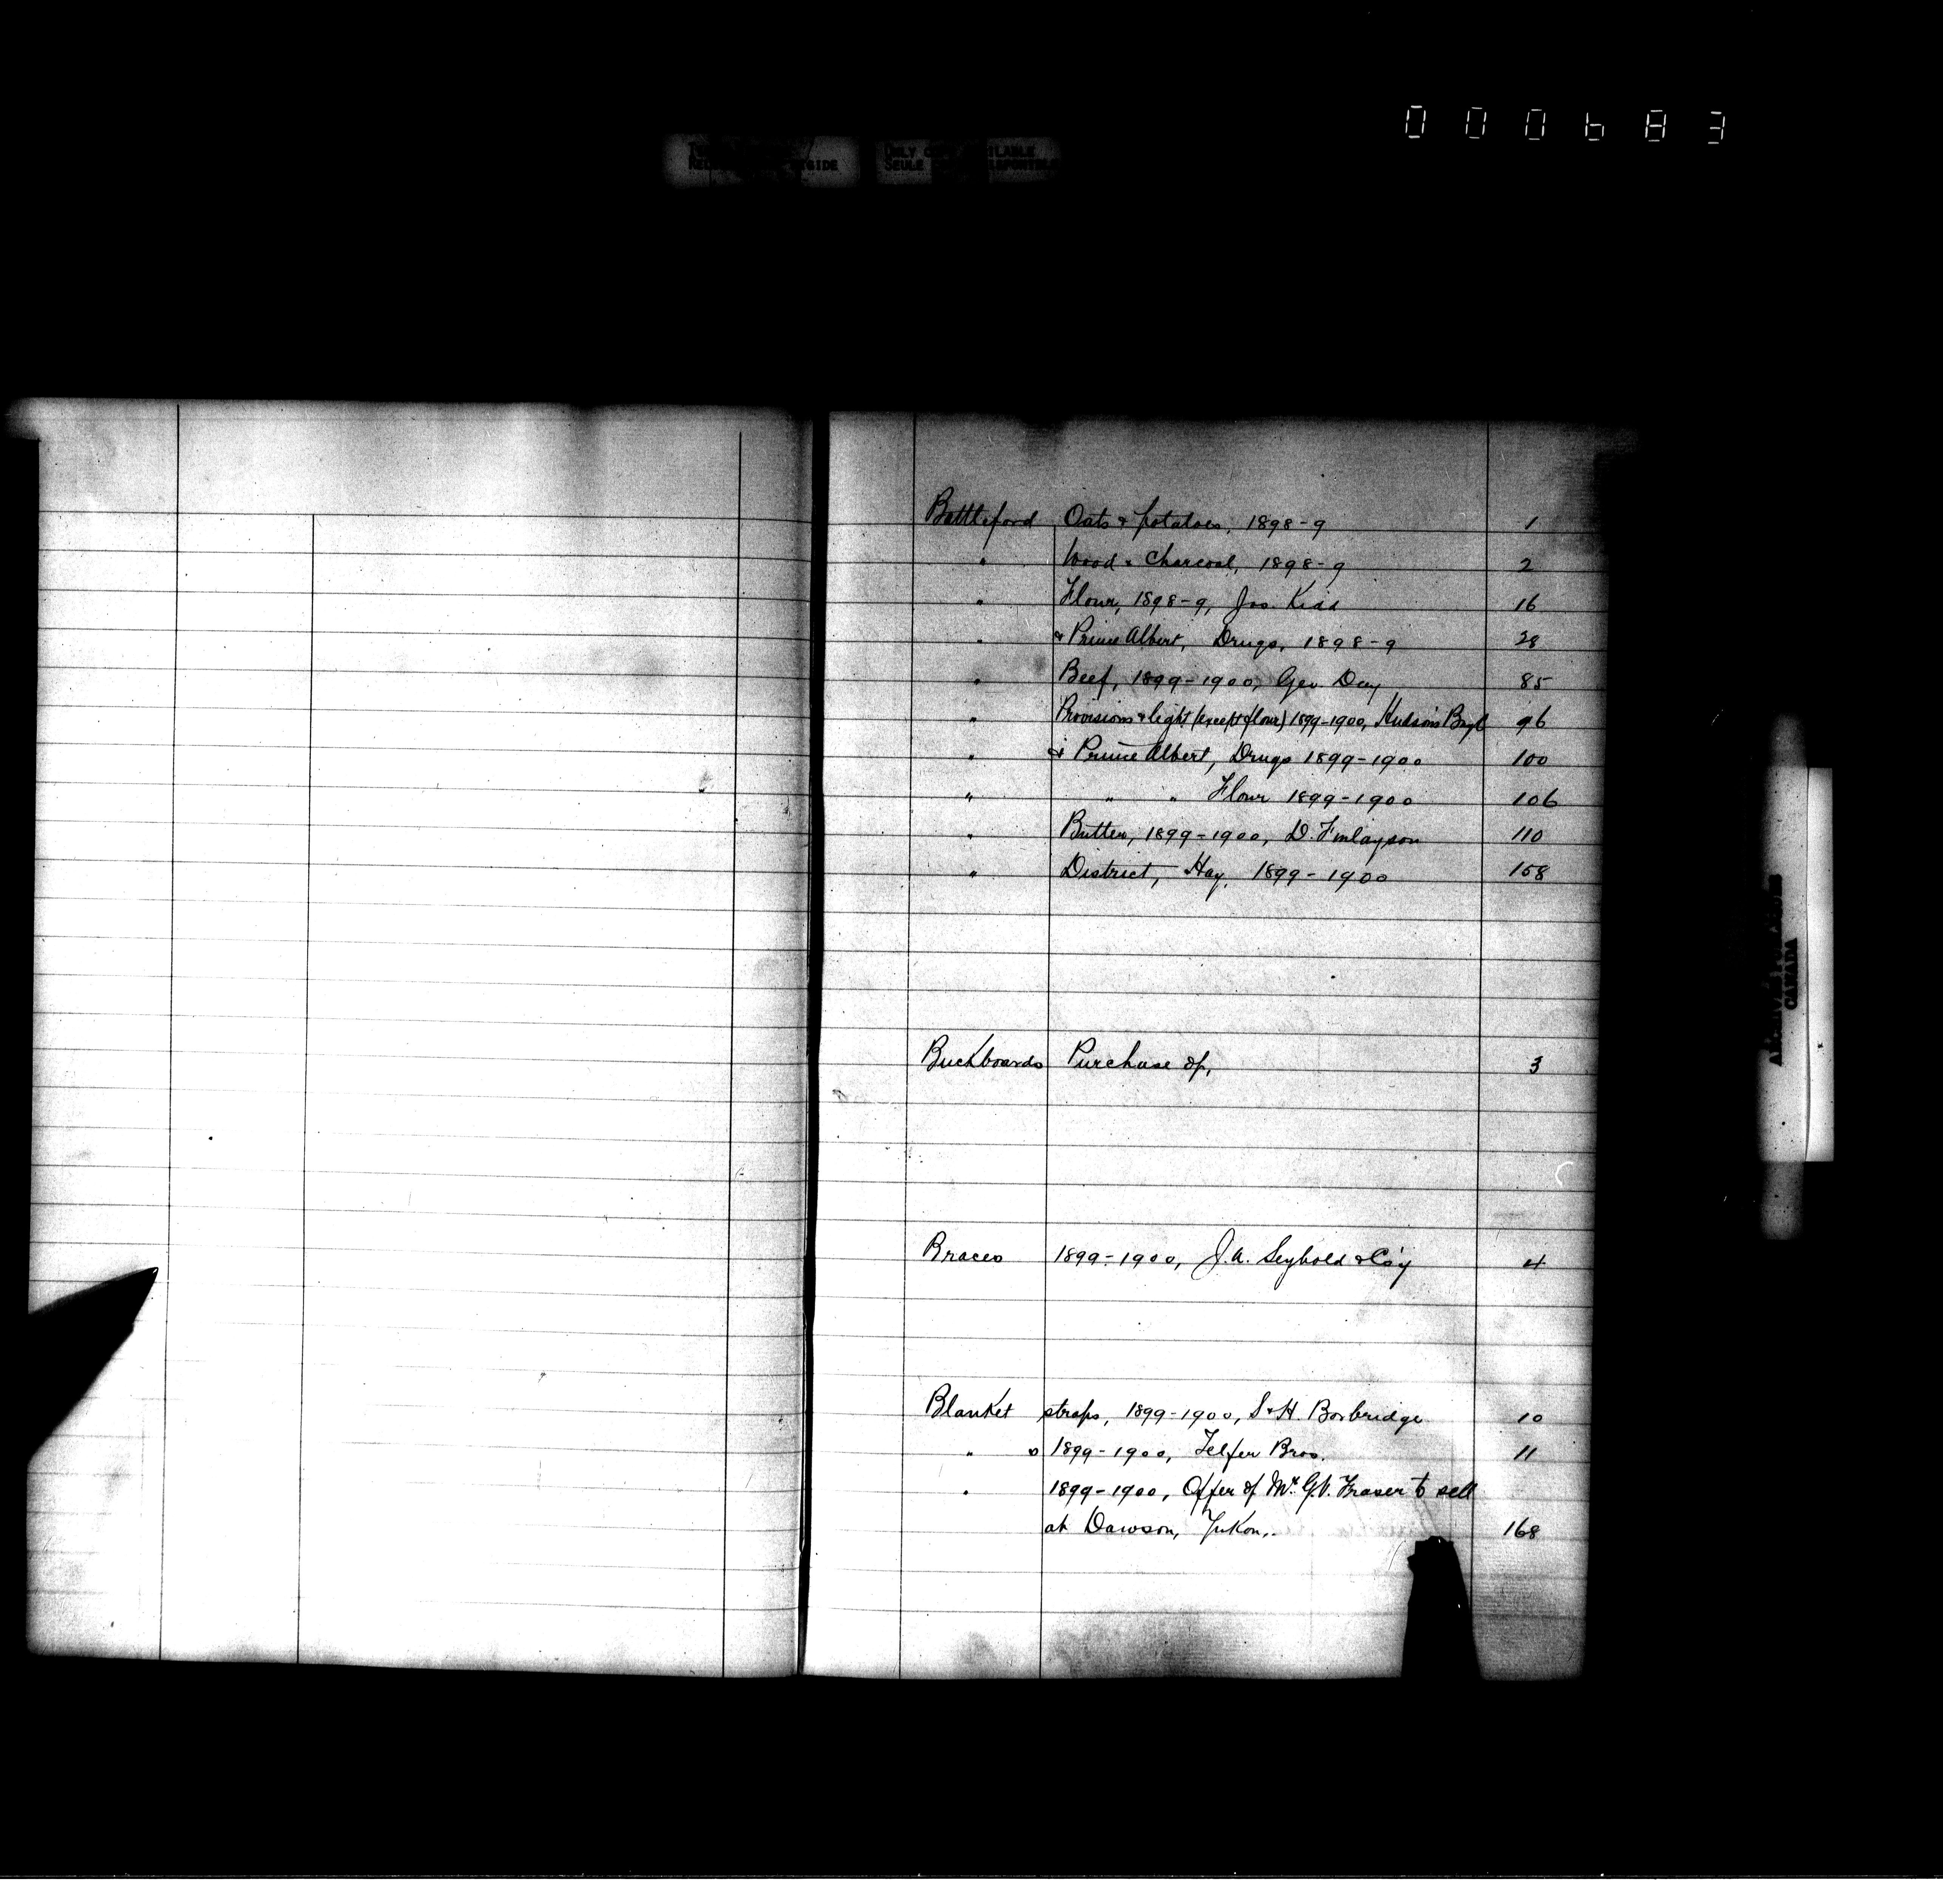 000683
Battleford Oats & potatoes, 1898-9 1
" Wood & Charcoal, 1898-9 2
" Flour, 1898-9, Jos. Kidd 16
" & Prince Albert, Drugs, 1898-9 28
" Beef, 1899-1900, Geo. Day 85
" Provisions & light (except flour) 1899-1900, Hudson's Bay C 96
" & Prince Albert, Drugs 1899-1900 100
" " " Flour 1899-1900 106
" Butter, 1899-1900, D. Finlayson 110
" District, Hay, 1899-1900 158
Buckboards Purchase of, 3
Braces 1899-1900, J.A. Seybold & Co'y 4
Blanket straps, 1899-1900, S & H. Borbridge 10
" s 1899-1900, Telfer Bros. 11
" 1899-1900, Offer of Mr. G.V. Fraser to sell
at Dawson, Yukon, 168
CANADA